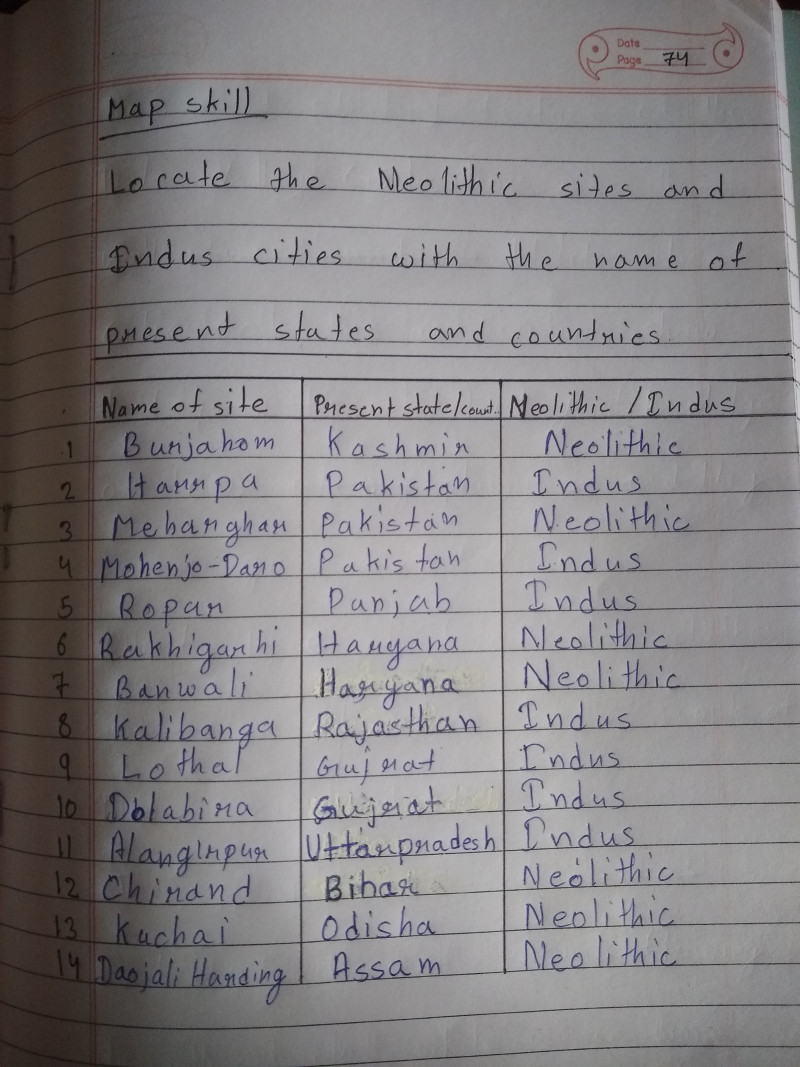 Date
Page 74
Map skill
Locate the Neolithic sites and
Indus cities with the name of
present states and countries.
Name of site Present state/count. Neolithic / Indus
1 Burjahom Kashmir Neolithic
2 Harrpa Pakistan Indus
3 Meharghar Pakistan Neolithic
4 Mohenjo-Daro Pakistan Indus
5 Ropar Punjab Indus
6 Rakhigarhi Haryana Neolithic
7 Banwali Haryana Neolithic
8 Kalibanga Rajasthan Indus
9 Lothal Gujrat Indus
10 Dolabira Gujrat Indus
11 Alangirpur Uttarpradesh Indus
12 Chirand Bihar Neolithic
13 Kuchai Odisha Neolithic
14 Daojali Harding Assam Neolithic